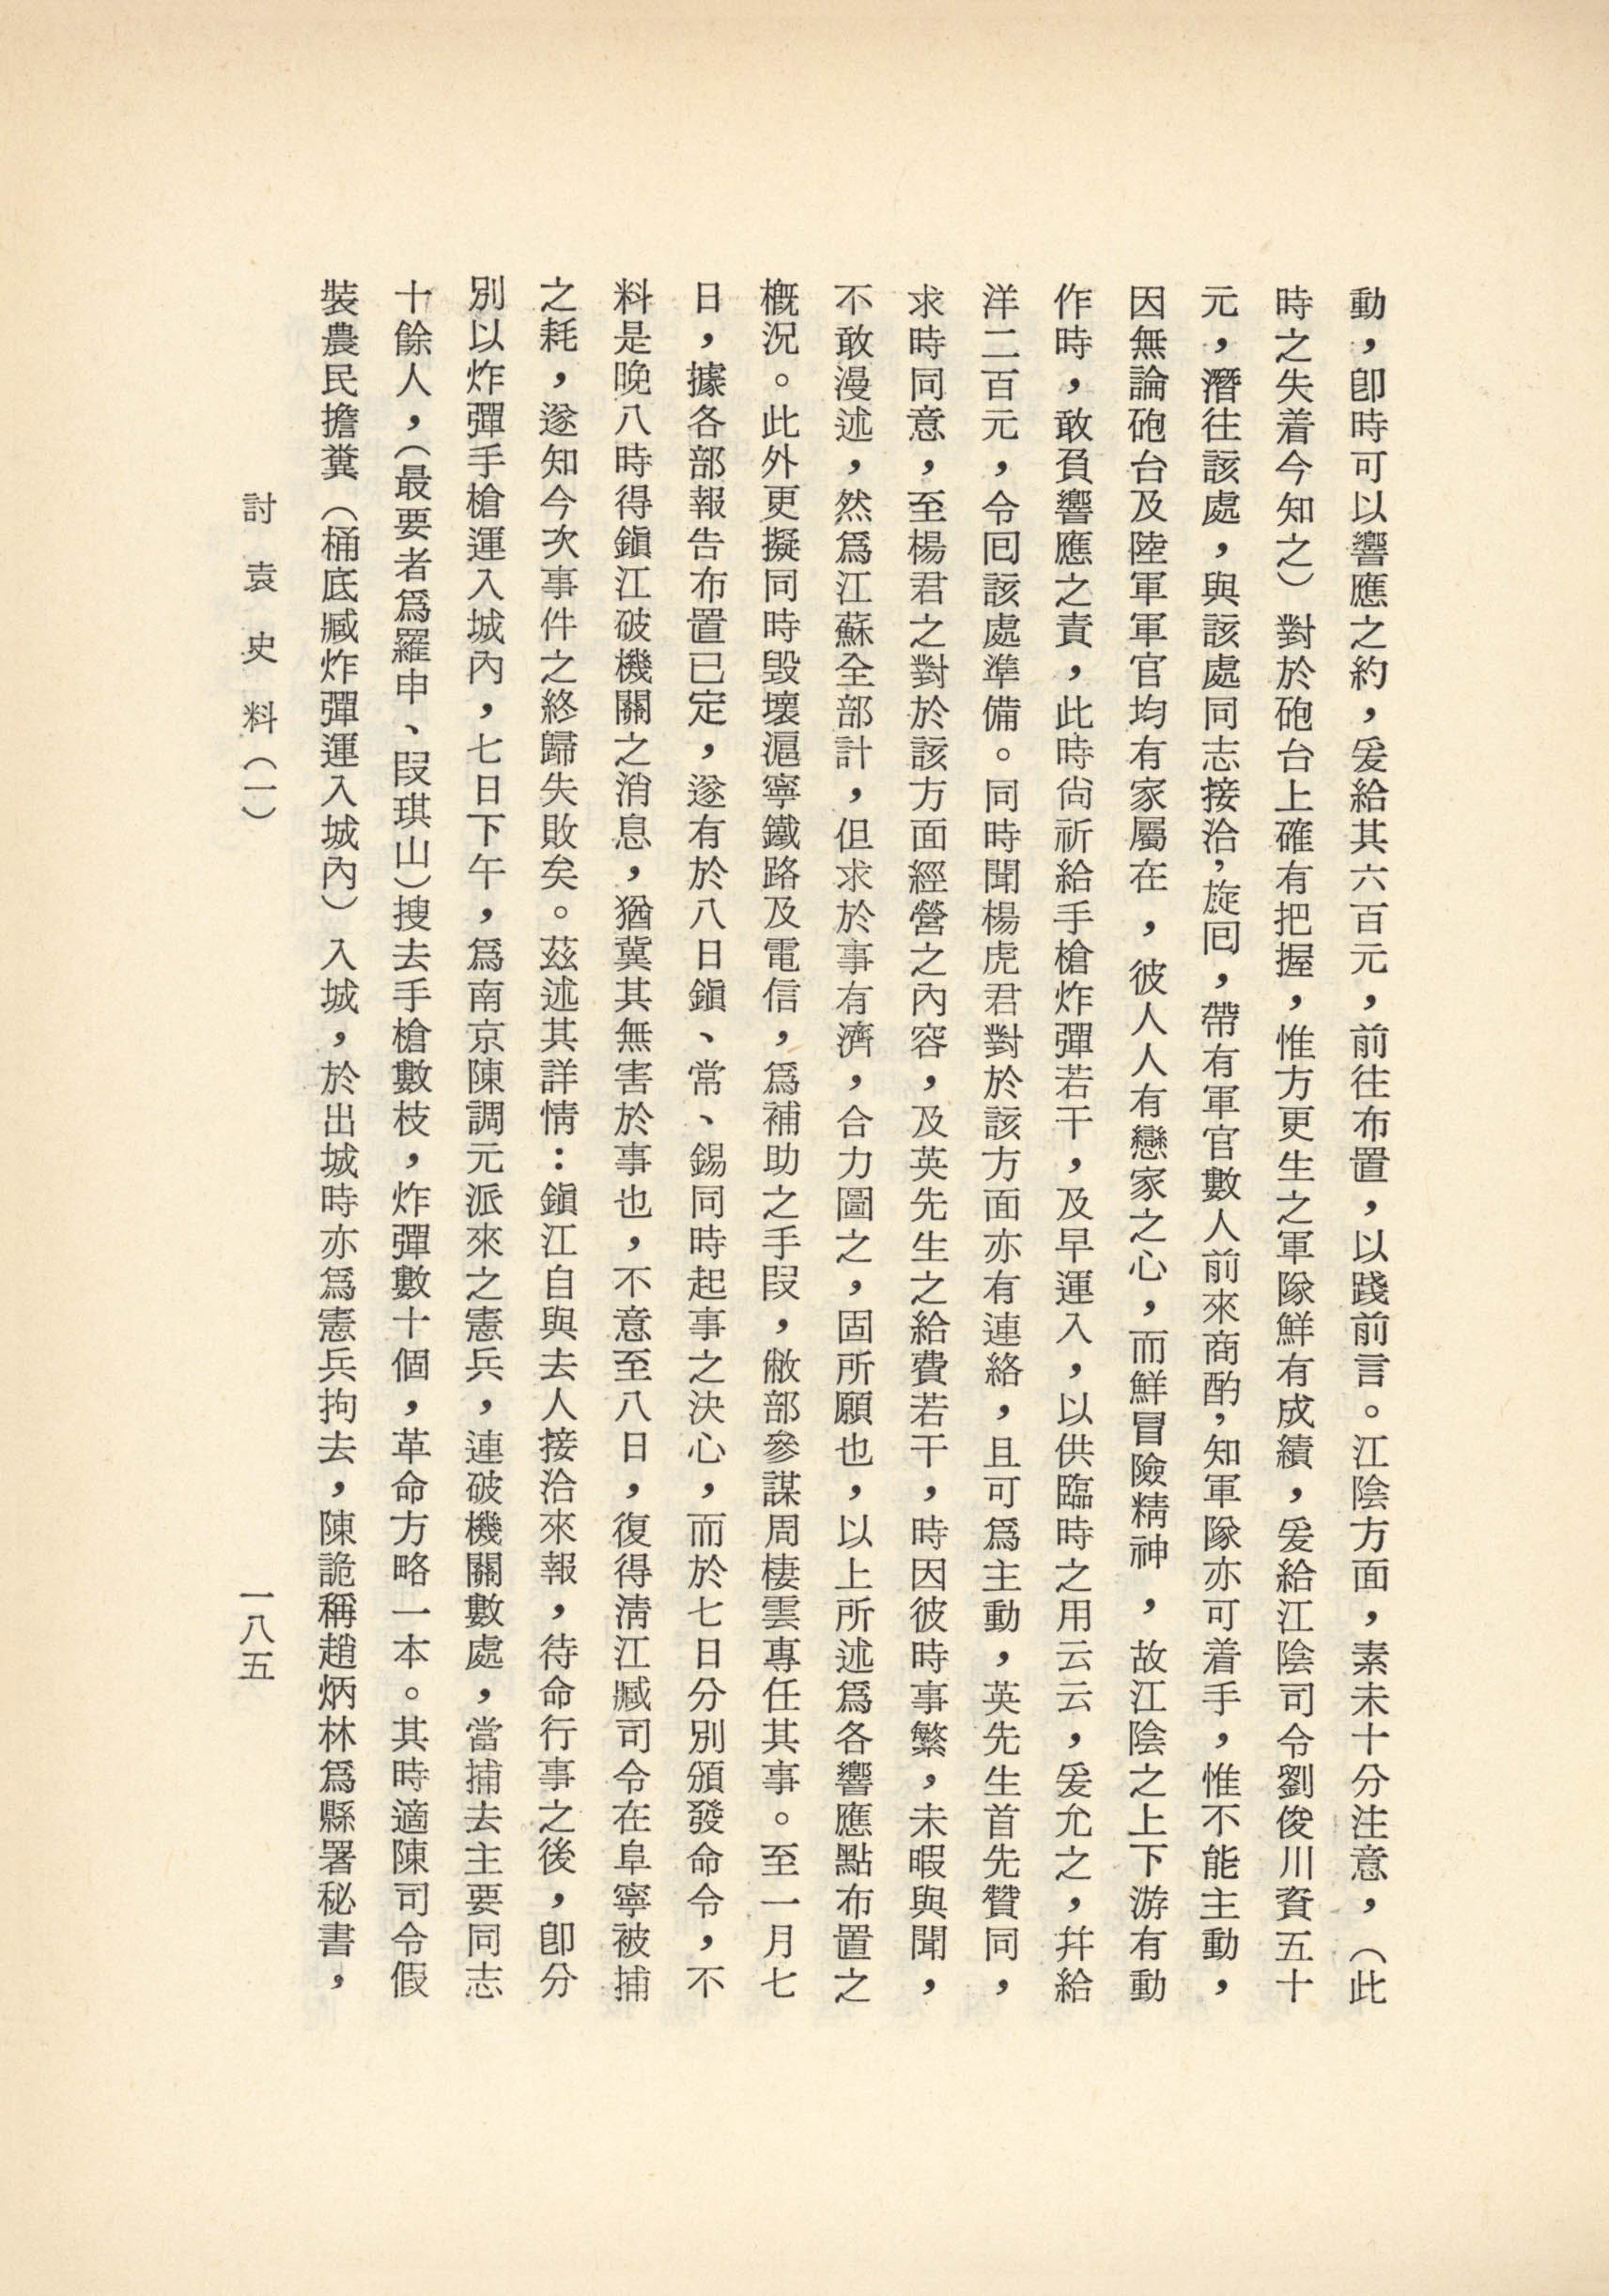 動，卽時可以響應之約，爰給其六百元，前往布置，以踐前言。江陰方面，素未十分注意，（此
時之失着今知之）對於砲台上確有把握，惟方更生之軍隊鮮有成績，爰給江陰司令劉俊川資五十
元，潛往該處，與該處同志接洽，旋囘，帶有軍官數人前來商酌，知軍隊亦可着手，惟不能主動，
因無論砲台及陸軍軍官均有家屬在，彼人人有戀家之心，而鮮冒險精神，故江陰之上下游有動
作時，敢負響應之責，此時尙祈給手槍炸彈若干，及早運入，以供臨時之用云云，爰允之，幷給
洋二百元，令囘該處準備。同時聞楊虎君對於該方面亦有連絡，且可爲主動，英先生首先贊同，
求時同意，至楊君之對於該方面經營之內容，及英先生之給費若干，時因彼時事繁，未暇與聞，
不敢漫述，然爲江蘇全部計，但求於事有濟，合力圖之，固所願也，以上所述爲各響應點布置之
概况。此外更擬同時毀壞滬寧鐵路及電信，爲補助之手段，敝部參謀周棲雲專任其事。至一月七
日，據各部報告布置已定，遂有於八日鎭、常、錫同時起事之決心，而於七日分別頒發命令，不
料是晚八時得鎭江破機關之消息，猶冀其無害於事也，不意至八日，復得淸江臧司令在阜寧被捕
之耗，遂知今次事件之終歸失敗矣。茲述其詳情：鎭江自與去人接洽來報，待命行事之後，卽分
別以炸彈手槍運入城內，七日下午，爲南京陳調元派來之憲兵，連破機關數處，當捕去主要同志
十餘人，（最要者爲羅申、段琪山）搜去手槍數枝，炸彈數十個，革命方略一本。其時適陳司令假
裝農民擔糞（桶底臧炸彈運入城內）入城，於出城時亦爲憲兵拘去，陳詭稱趙炳林爲縣署秘書，
討袁史料（一）
一八五